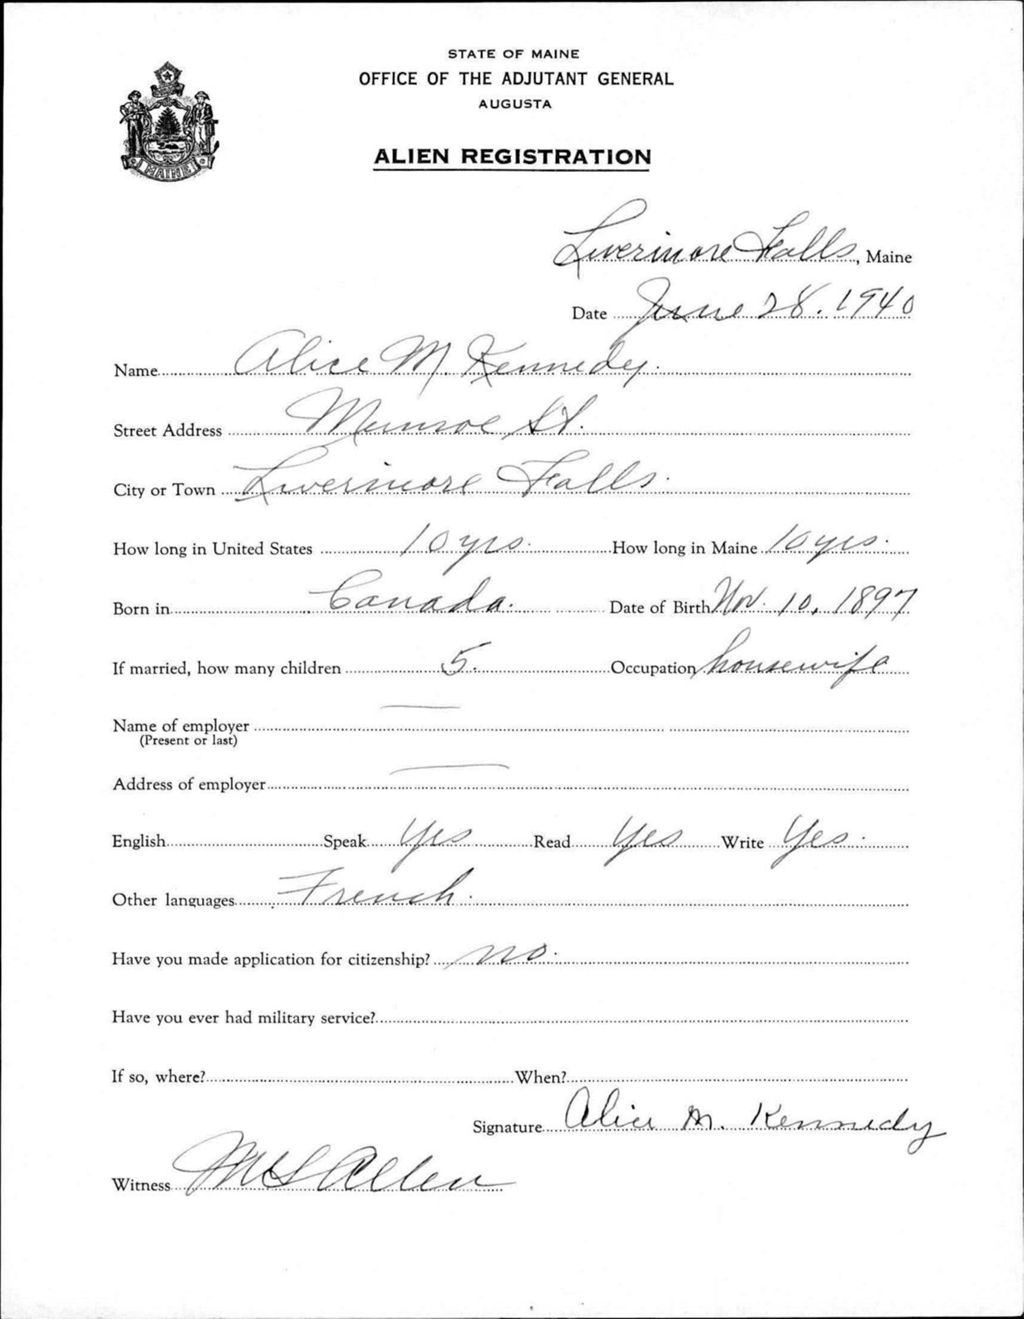 STATE OF MAINE
OFFICE OF THE ADJUTANT GENERAL
AUGUSTA
ALIEN REGISTRATION
MAINE
Livermore Falls, Maine
Date June 28. 1940
Name Alice M. Kennedy.
Street Address Munroe St.
City or Town Livermore Falls.
How long in United States 10 yrs. How long in Maine 10 yrs.
Born in Canada. Date of Birth Nov. 10, 1897
If married, how many children 5. Occupation housewife
Name of employer —
(Present or last)
Address of employer —
English Speak Yes Read Yes Write Yes.
Other languages French.
Have you made application for citizenship? no.
Have you ever had military service?
If so, where? When?
Signature Alice M. Kennedy
Witness Allen